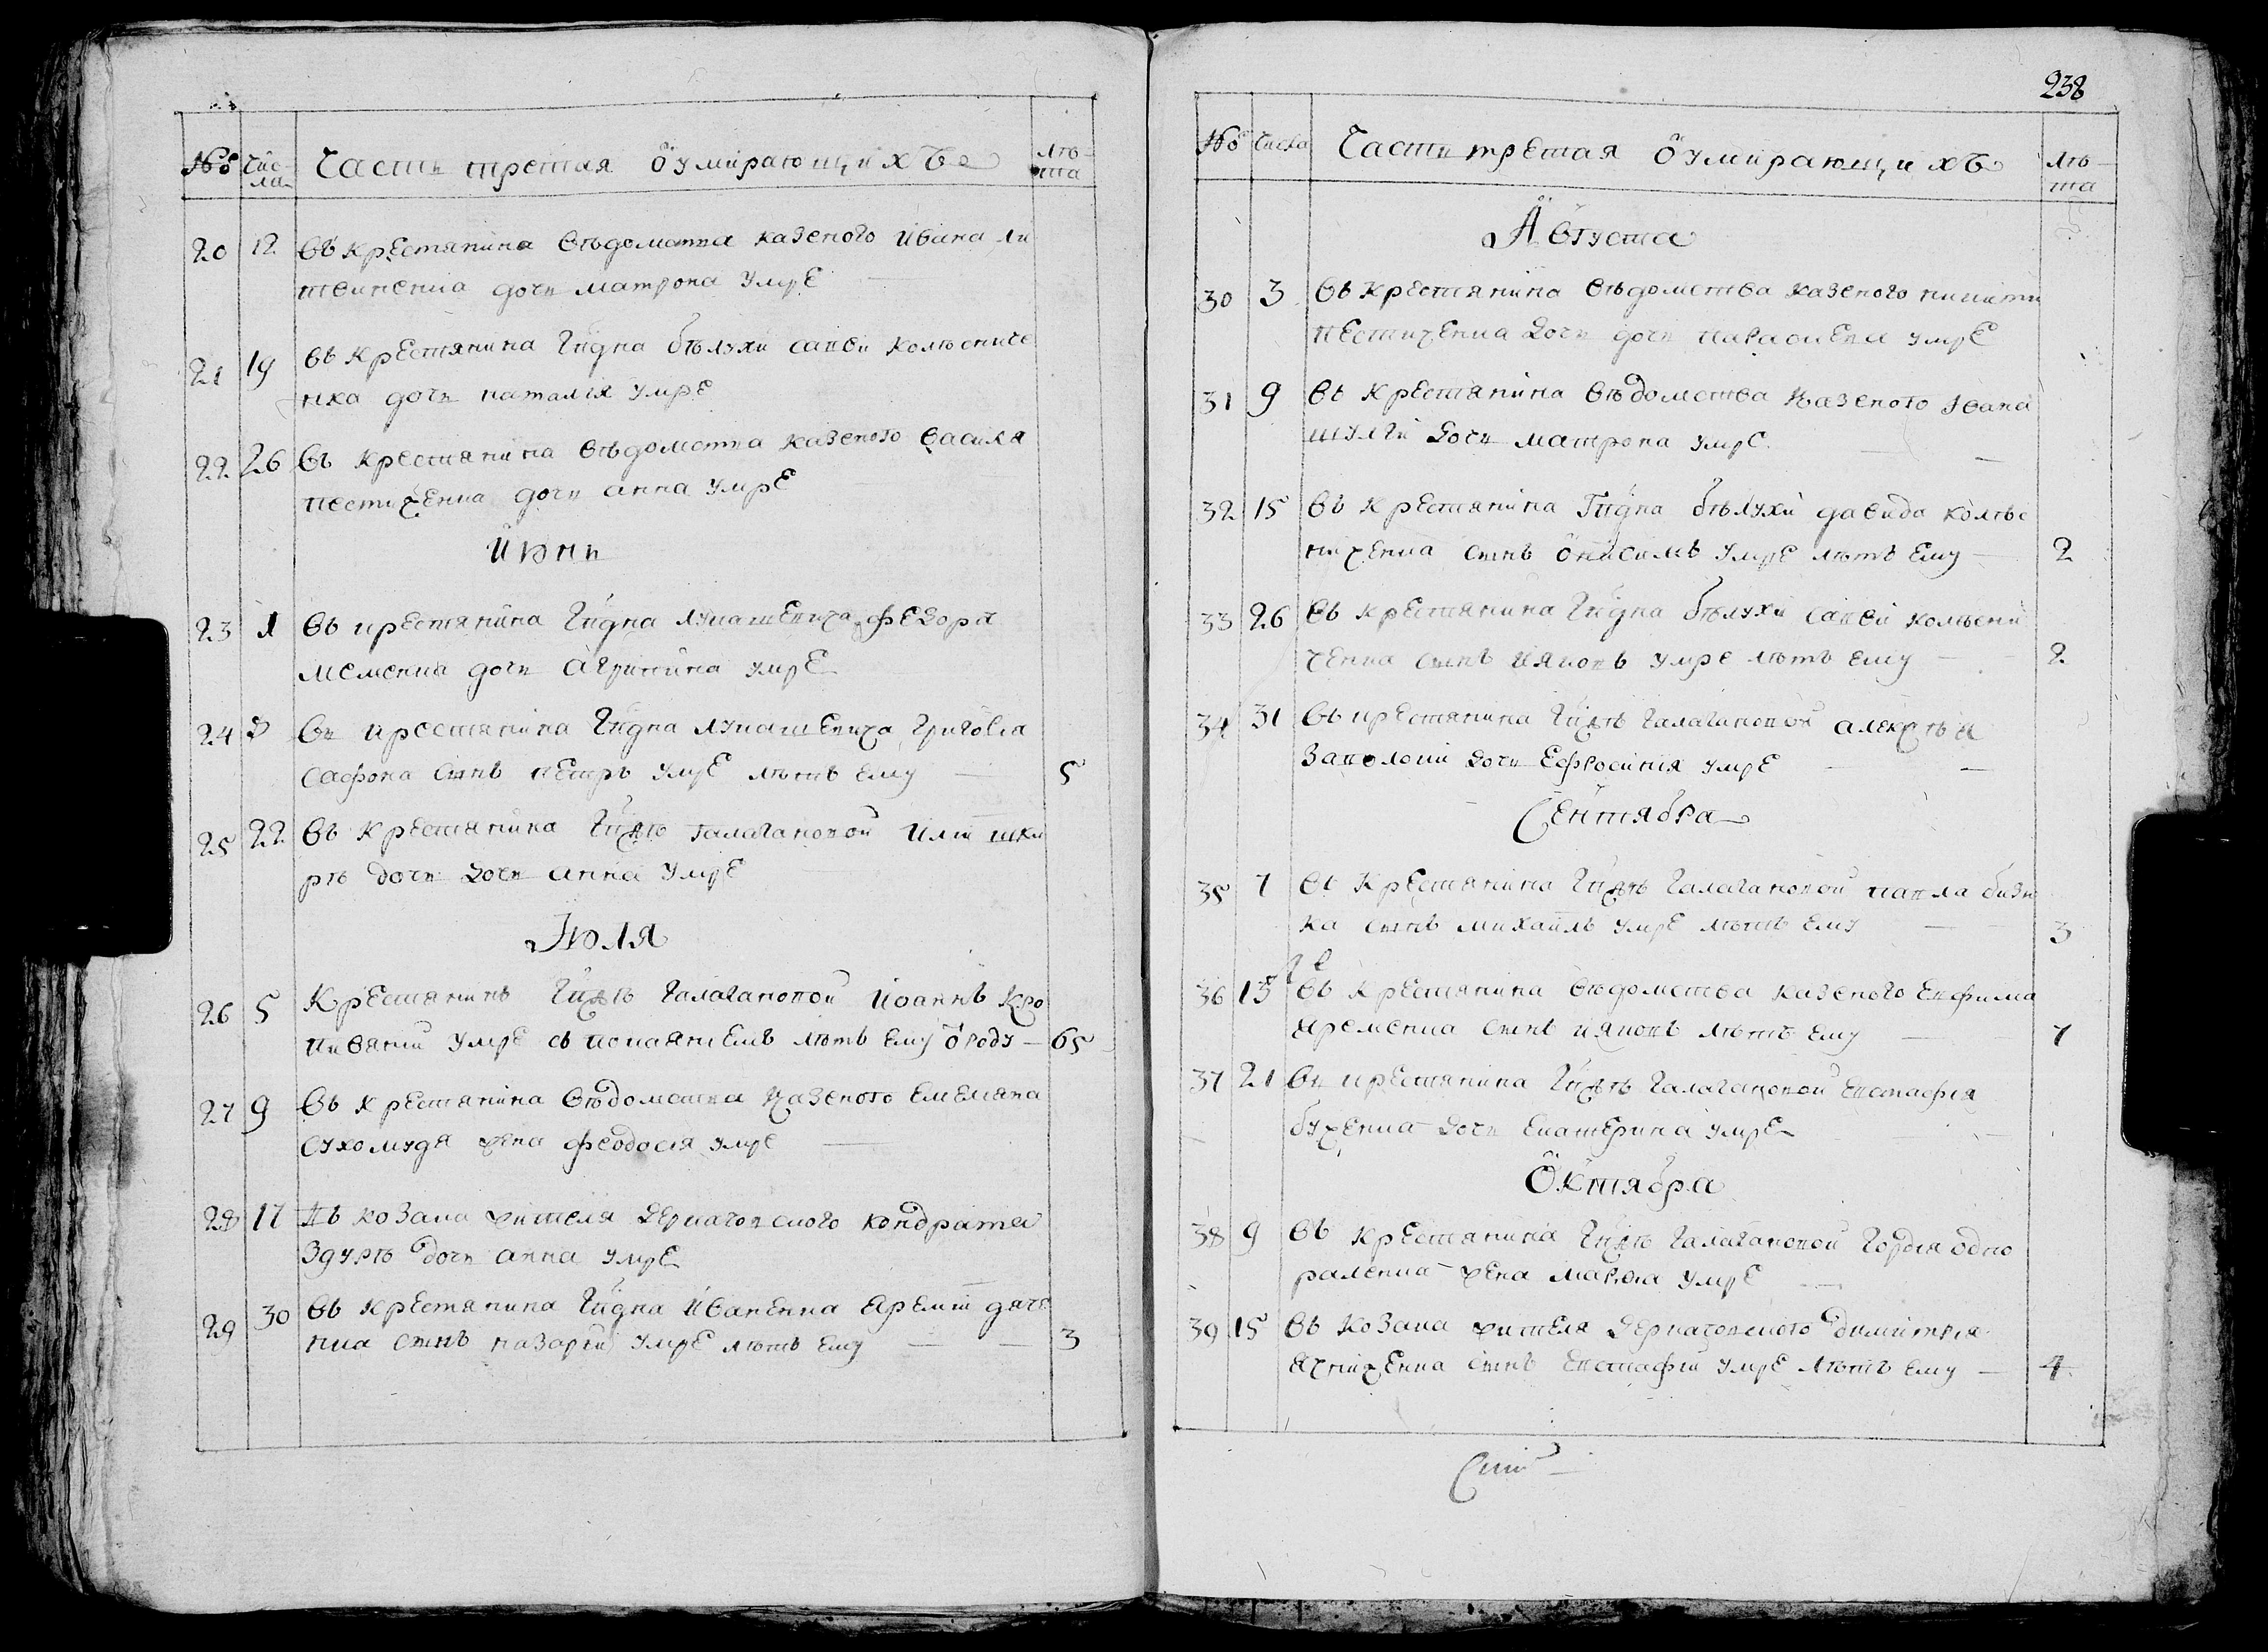 238
№ Чис-
ла
Часть третая о умирающихъ
Лѣ-
та
20 12 въ крестянина вѣдомства казеного ивана ли
твиненка дочь матрона умре
21 19 въ крестянина гпдна бѣлухи савви колѣсниче
нка дочь наталия умре
22 26 въ крестянина вѣдомства казеного василя
пестиченка дочь анна умре
Июнь
23 1 въ крестянина гпдна лукашевича федора
мсменка дочь агрипина умре
24 въ крестянина гпдна лукашевича григория
сафона синъ петръ умре лѣтъ ему 5
25 22 въ крестянина гпжѣ галагановой илии шки
рѣ дочь дочь анна умре
Июля
26 5 Крестянинъ гпжѣ галагановой иоаннъ кро
пивяний умре съ покаяниемъ лѣтъ ему о роду 65
27 9 въ крестянина вѣдомства казеного емемяна
сухомудя жена феодосия умре
28 17 въ козака жителя держановского кондрата
здурѣ дочь анна умре
29 30 въ крестянина гпдна иваненка яреми дяче
нка синъ назарий умре лѣтъ ему 3
№ Числа Часть третая о умирающихъ Лѣ-
та
Августа
30 3 въ крестянина вѣдомства казеного никити
пестиченка дочь дочь параскева умре
31 9 въ крестянина вѣдомства казеного ивана
шулги дочь матрона умре
32 15 въ крестянина гпдна бѣлухи давида колѣс
ниченка синъ онисимъ умре лѣтъ ему 2
33 26 въ крестянина гпдна бѣлухи савви колѣсни
ченка синъ ияковъ умре лѣтъ ему 2
34 31 въ крестянина гпжѣ галагановой алексѣя
заполоии дочь ефросиния умре
Сентября
35 7 въ крестянина гпжѣ галагановой павла бизю
ка синъ михаилъ умре лѣтъ ему 3
36 13 въ крестянина вѣдомства казеного евфима
яременка синъ ияковъ лѣтъ ему 7
37 21 въ крестянина гпжѣ галагановой евстафия
бужѣнка дочь екатерина умре
Октября
38 9 въ крестянина гпжѣ галагановой гордия одно
раленка жена мария умре
39 15 въ козака жителя держановского димитрия
ячниченка синъ евстафий умре лѣтъ ему 4